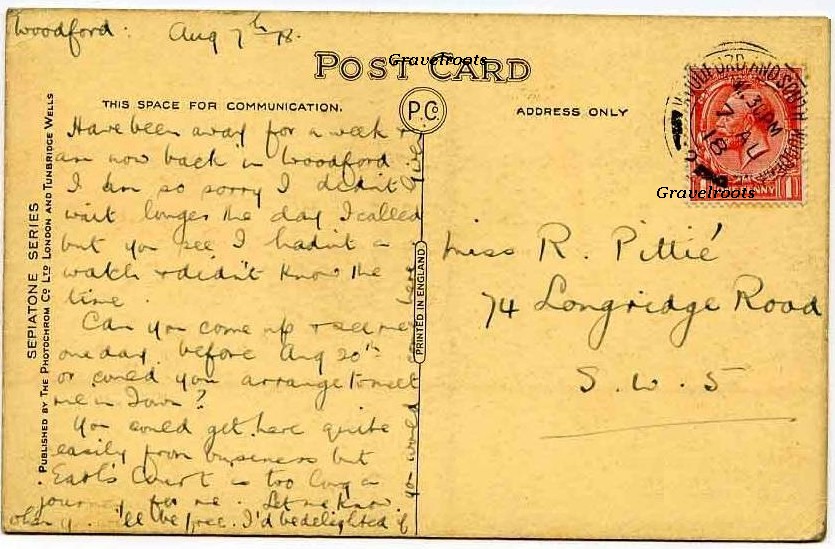 Woodford. Aug 7th 18.
POST CARD
Gravelroots
THIS SPACE FOR COMMUNICATION.
P.C.
ADDRESS ONLY
Have been away for a week &
am now back in Woodford.
I am so sorry I didn't
wait longer the day I called
but you see I hadn't a
watch & didn't know the
time.
Can you come up & see me
one day before Aug 20th
or could you arrange to meet
me in Town?
You could get here quite
easily from business but
Earl's Court is too long a
journey for me. Let me know
when you'll be free. I'd be delighted if
you would come
Miss R. Pittié
74 Longridge Road
S.W.5
WOODFORD AND SOUTH WOODFORD
3 PM
7 AU
18
PENNY
Gravelroots
PRINTED IN ENGLAND.
SEPIATONE SERIES
PUBLISHED BY THE PHOTOCHROM CO LTD LONDON AND TUNBRIDGE WELLS